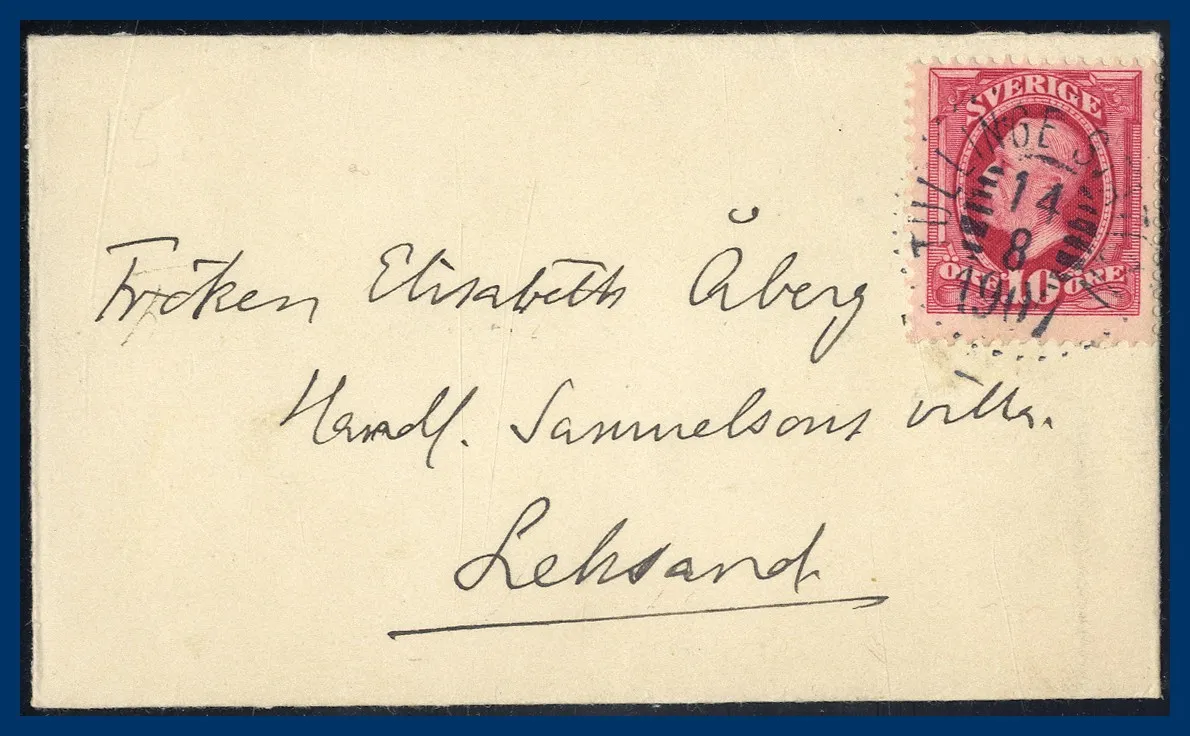 SVERIGE
TULLINGE
14
8
1907
10 ÖRE
Fröken Elisabeth Åberg
Handl. Samuelsons villa.
Leksand